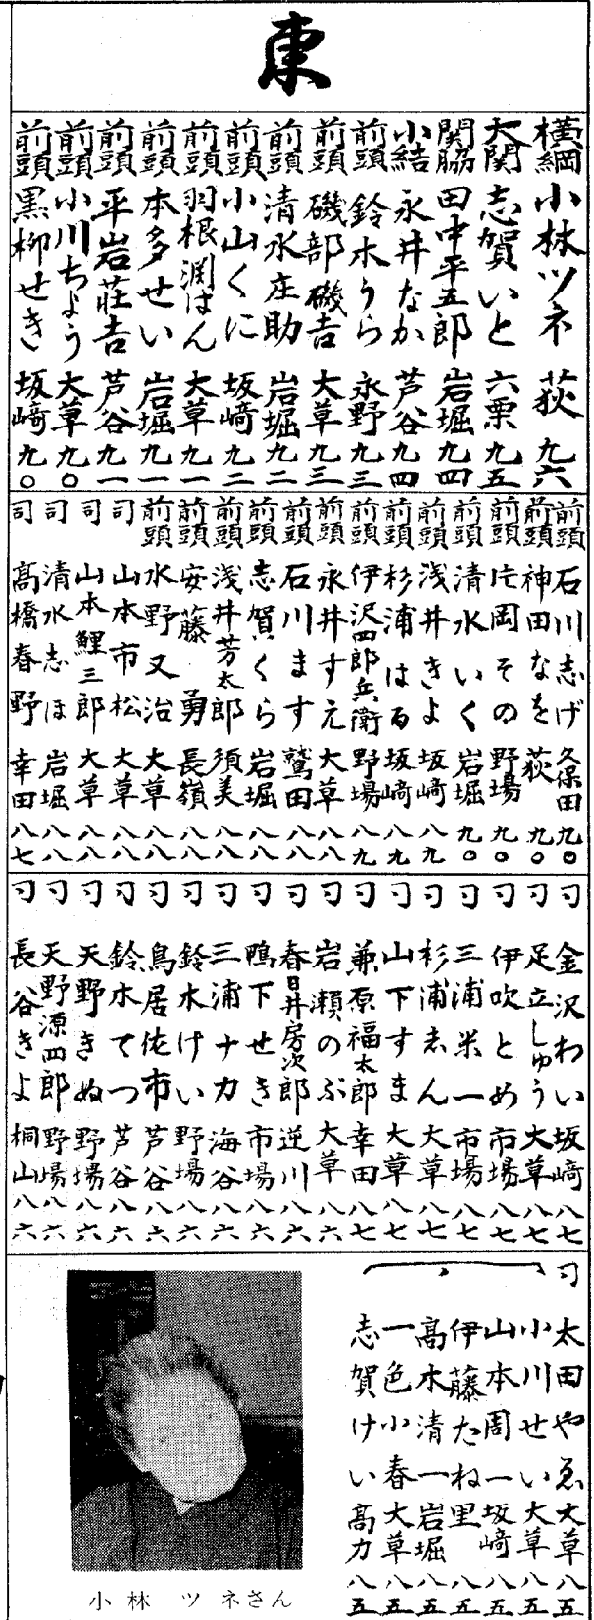 東
横綱 小林ツネ 荻 九六
大関 志賀いと 六栗 九五
関脇 田中平五郎 岩堀 九四
小結 永井なか 芦谷 九四
前頭 鈴木うら 永野 九三
前頭 磯部磯吉 大草 九三
前頭 清水庄助 岩堀 九二
前頭 小山くに 坂崎 九二
前頭 羽根渕はん 大草 九一
前頭 本多せい 岩堀 九一
前頭 平岩荘吉 芦谷 九一
前頭 小川ちよう 大草 九〇
前頭 黒柳せき 坂崎 九〇
前頭 石川志げ 久保田 九〇
前頭 神田なを 荻 九〇
前頭 片岡その 野場 九〇
前頭 清水いく 岩堀 九〇
前頭 浅井きよ 坂崎 八九
前頭 杉浦はる 坂崎 八九
前頭 伊沢四郎兵衛 野場 八九
前頭 永井すえ 大草 八八
前頭 石川ます 鷲田 八八
前頭 志賀くら 岩堀 八八
前頭 浅井芳太郎 須美 八八
前頭 安藤勇 長嶺 八八
前頭 水野又治 大草 八八
司 山本市松 大草 八八
司 山本鯉三郎 大草 八八
司 清水志ほ 岩堀 八八
司 高橋春野 幸田 八七
司 金沢わい 坂崎 八七
司 足立しゅう 大草 八七
司 伊吹とめ 市場 八七
司 三浦米一 市場 八七
司 杉浦志ん 大草 八七
司 山下すま 大草 八七
司 兼原福太郎 幸田 八七
司 岩瀬のぶ 大草 八六
司 春日井房次郎 逆川 八六
司 鴨下せき 市場 八六
司 三浦ナカ 海谷 八六
司 鈴木けい 野場 八六
司 鳥居佐市 芦谷 八六
司 鈴木てつ 芦谷 八六
司 天野きぬ 野場 八六
司 天野源四郎 野場 八六
司 長谷きよ 桐山 八六
司 太田やゑ 大草 八五
小川せい 大草 八五
山本周一 坂崎 八五
伊藤たね 里 八五
高木清一 岩堀 八五
一色小春 大草 八五
志賀けい 高力 八五
小林 ツネさん